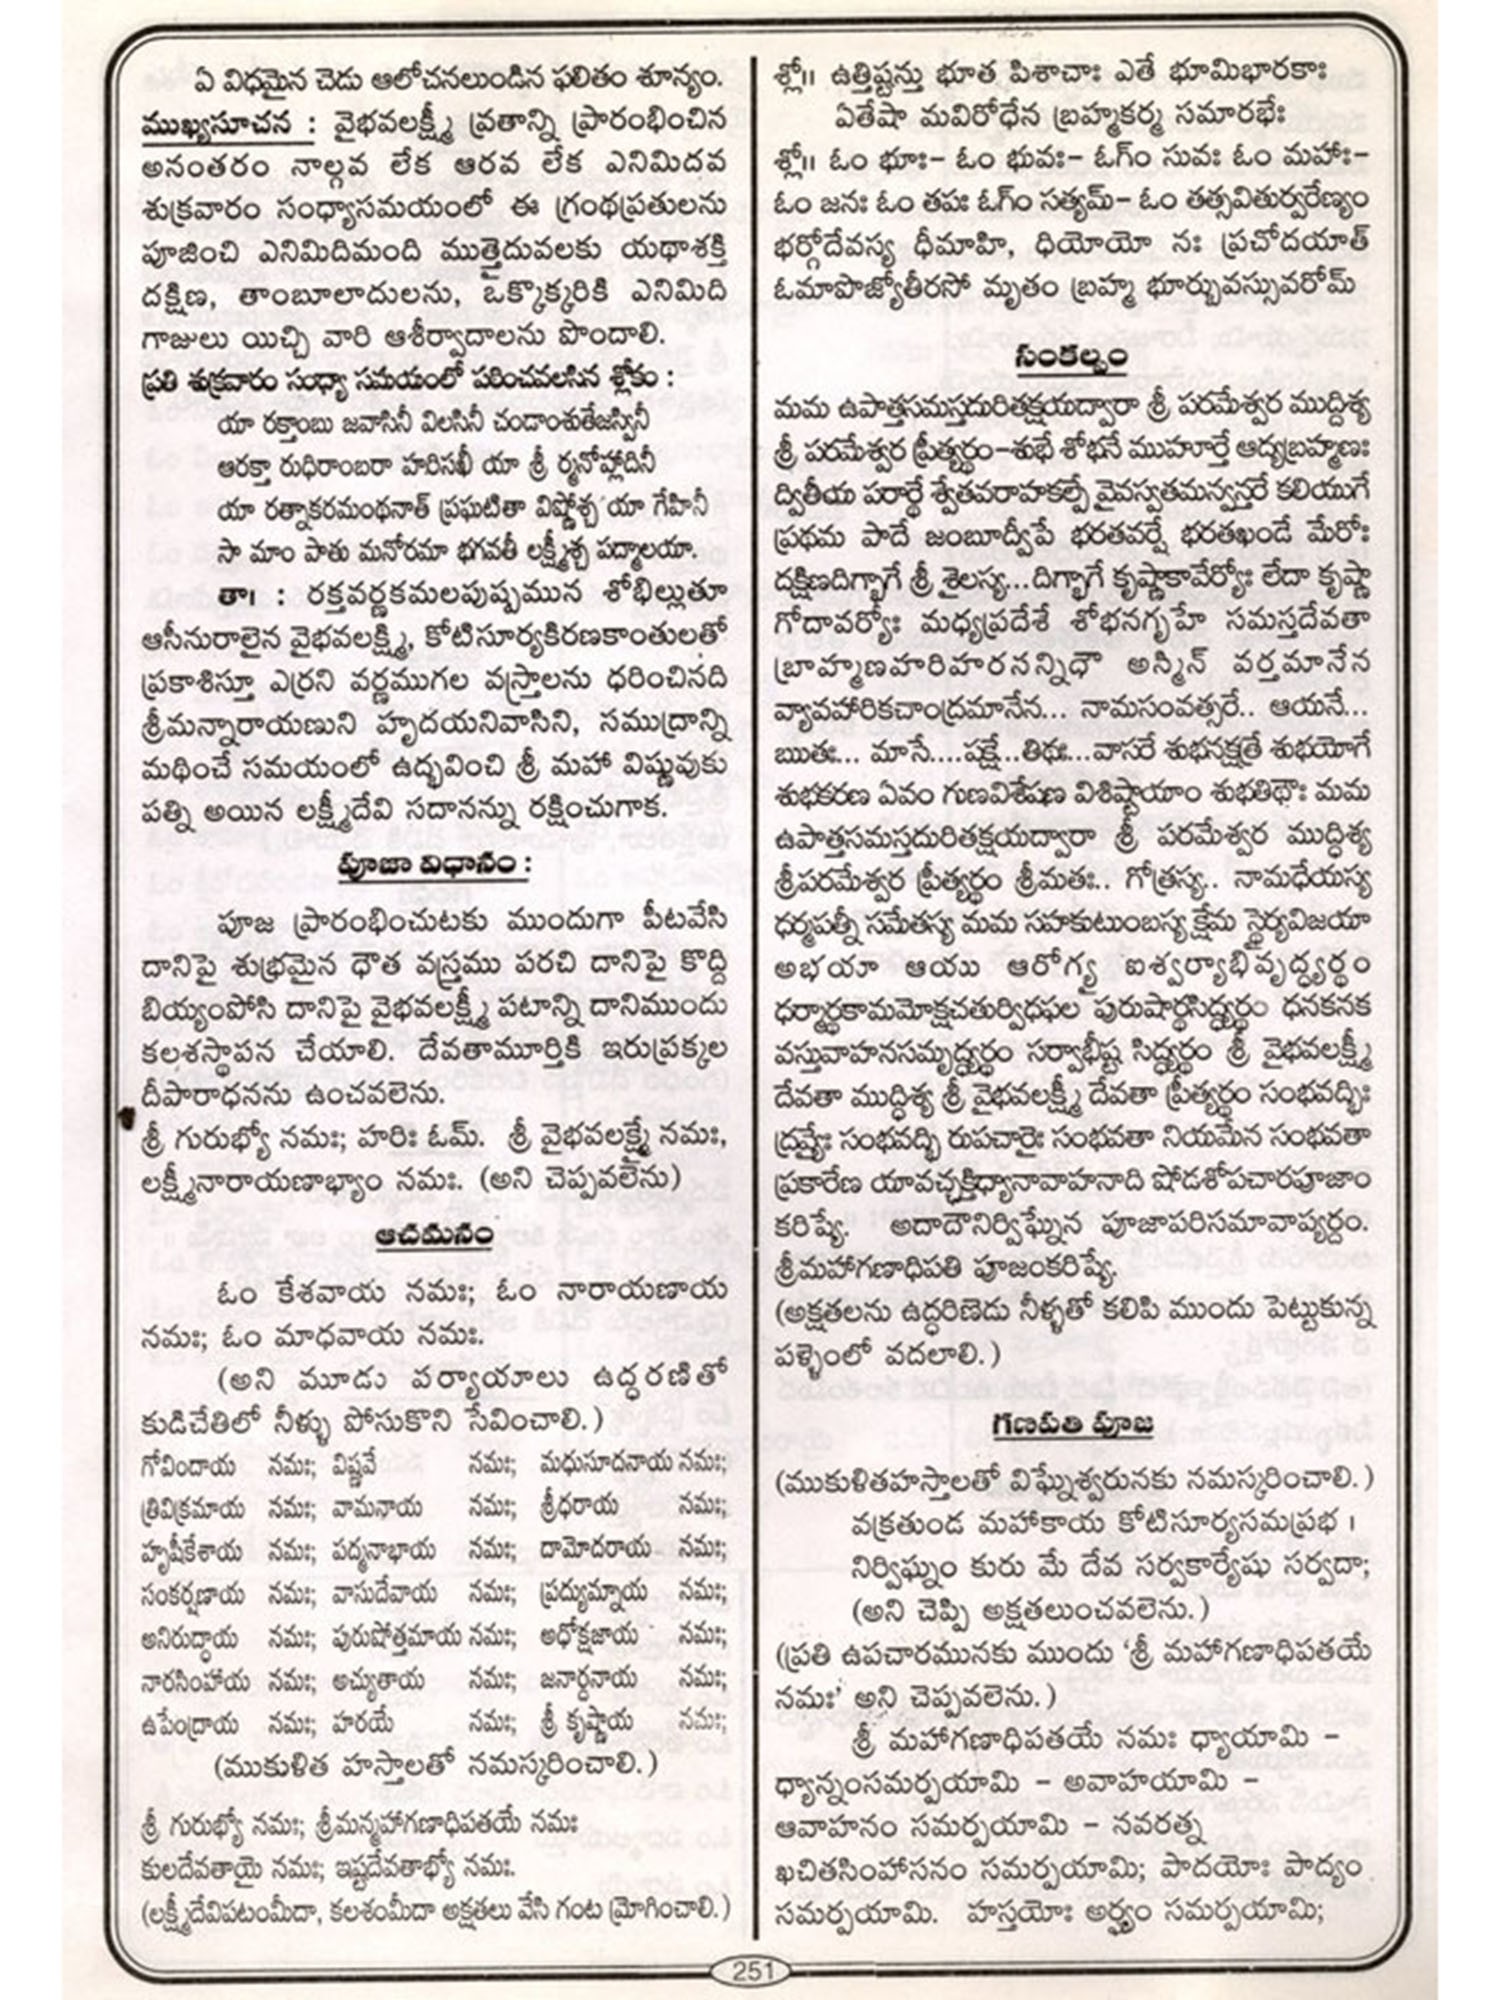 ఏ విధమైన చెడు ఆలోచనలుండిన ఫలితం శూన్యం.
ముఖ్యసూచన : వైభవలక్ష్మీ వ్రతాన్ని ప్రారంభించిన
అనంతరం నాల్గవ లేక ఆరవ లేక ఎనిమిదవ
శుక్రవారం సంధ్యాసమయంలో ఈ గ్రంథప్రతులను
పూజించి ఎనిమిదిమంది ముత్తైదువలకు యథాశక్తి
దక్షిణ, తాంబూలాదులను, ఒక్కొక్కరికి ఎనిమిది
గాజులు యిచ్చి వారి ఆశీర్వాదాలను పొందాలి.
ప్రతి శుక్రవారం సంధ్యా సమయంలో పఠించవలసిన శ్లోకం :
యా రక్తాంబు జవాసినీ విలసినీ చండాంశుతేజస్వినీ
ఆరక్తా రుధిరాంబరా హరిసఖీ యా శ్రీ ర్మనోహ్లాదినీ
యా రత్నాకరమంథనాత్ ప్రఘటితా విష్ణోశ్చ యా గేహినీ
సా మాం పాతు మనోరమా భగవతీ లక్ష్మీశ్చ పద్మాలయా.
తా। : రక్తవర్ణకమలపుష్పమున శోభిల్లుతూ
ఆసీనురాలైన వైభవలక్ష్మి, కోటిసూర్యకిరణకాంతులతో
ప్రకాశిస్తూ ఎర్రని వర్ణముగల వస్త్రాలను ధరించినది
శ్రీమన్నారాయణుని హృదయనివాసిని, సముద్రాన్ని
మథించే సమయంలో ఉద్భవించి శ్రీ మహా విష్ణువుకు
పత్ని అయిన లక్ష్మీదేవి సదానన్ను రక్షించుగాక.
పూజా విధానం :
పూజ ప్రారంభించుటకు ముందుగా పీటవేసి
దానిపై శుభ్రమైన ధౌత వస్త్రము పరచి దానిపై కొద్ది
బియ్యంపోసి దానిపై వైభవలక్ష్మీ పటాన్ని దానిముందు
కలశస్థాపన చేయాలి. దేవతామూర్తికి ఇరుప్రక్కల
దీపారాధనను ఉంచవలెను.
శ్రీ గురుభ్యో నమః; హరిః ఓమ్. శ్రీ వైభవలక్ష్మై నమః,
లక్ష్మీనారాయణాభ్యాం నమః. (అని చెప్పవలెను)
ఆచమనం
ఓం కేశవాయ నమః; ఓం నారాయణాయ
నమః; ఓం మాధవాయ నమః.
(అని మూడు పర్యాయాలు ఉద్ధరణితో
కుడిచేతిలో నీళ్ళు పోసుకొని సేవించాలి.)
గోవిందాయ నమః; విష్ణవే నమః; మధుసూదనాయ నమః;
త్రివిక్రమాయ నమః; వామనాయ నమః; శ్రీధరాయ నమః;
హృషీకేశాయ నమః; పద్మనాభాయ నమః; దామోదరాయ నమః;
సంకర్షణాయ నమః; వాసుదేవాయ నమః; ప్రద్యుమ్నాయ నమః;
అనిరుద్ధాయ నమః; పురుషోత్తమాయ నమః; అధోక్షజాయ నమః;
నారసింహాయ నమః; అచ్యుతాయ నమః; జనార్దనాయ నమః;
ఉపేంద్రాయ నమః; హరయే నమః; శ్రీ కృష్ణాయ నమః;
(ముకుళిత హస్తాలతో నమస్కరించాలి.)
శ్రీ గురుభ్యో నమః; శ్రీమన్మహాగణాధిపతయే నమః
కులదేవతాయై నమః; ఇష్టదేవతాభ్యో నమః.
(లక్ష్మీదేవిపటంమీదా, కలశంమీదా అక్షతలు వేసి గంట మ్రోగించాలి.)
శ్లో॥ ఉత్తిష్టన్తు భూత పిశాచాః ఎతే భూమిభారకాః
ఏతేషా మవిరోధేన బ్రహ్మకర్మ సమారభేః
శ్లో॥ ఓం భూః- ఓం భువః- ఓగ్ం సువః ఓం మహాః-
ఓం జనః ఓం తపః ఓగ్ం సత్యమ్- ఓం తత్సవితుర్వరేణ్యం
భర్గోదేవస్య ధీమాహి, ధియోయో నః ప్రచోదయాత్
ఓమాపొజ్యోతీరసో మృతం బ్రహ్మ భూర్భువస్సువరోమ్
సంకల్పం
మమ ఉపాత్తసమస్తదురితక్షయద్వారా శ్రీ పరమేశ్వర ముద్దిశ్య
శ్రీ పరమేశ్వర ప్రీత్యర్థం-శుభే శోభనే ముహూర్తే ఆద్యబ్రహ్మణః
ద్వితీయ పరార్థే శ్వేతవరాహకల్పే వైవస్వతమన్వన్తరే కలియుగే
ప్రథమ పాదే జంబూద్వీపే భరతవర్షే భరతఖండే మేరోః
దక్షిణదిగ్భాగే శ్రీ శైలస్య...దిగ్భాగే కృష్ణాకావేర్యోః లేదా కృష్ణా
గోదావర్యోః మధ్యప్రదేశే శోభనగృహే సమస్తదేవతా
బ్రాహ్మణహరిహరనన్నిధౌ అస్మిన్ వర్తమానేన
వ్యావహారికచాంద్రమానేన... నామసంవత్సరే.. ఆయనే...
ఋతః... మాసే....పక్షే..తిథః...వాసరే శుభనక్షత్రే శుభయోగే
శుభకరణ ఏవం గుణవిశేషణ విశిష్టాయాం శుభతిథౌః మమ
ఉపాత్తసమస్తదురితక్షయద్వారా శ్రీ పరమేశ్వర ముద్ధిశ్య
శ్రీపరమేశ్వర ప్రీత్యర్థం శ్రీమతః.. గోత్రస్య.. నామధేయస్య
ధర్మపత్నీ సమేతస్య మమ సహకుటుంబస్య క్షేమ స్థైర్యవిజయా
అభయా ఆయు ఆరోగ్య ఐశ్వర్యాభివృద్ధ్యర్థం
ధర్మార్థకామమోక్షచతుర్విధఫల పురుషార్థసిద్ధ్యర్థం ధనకనక
వస్తువాహనసమృద్ధ్యర్థం సర్వాభీష్ట సిద్ధ్యర్థం శ్రీ వైభవలక్ష్మీ
దేవతా ముద్ధిశ్య శ్రీ వైభవలక్ష్మీ దేవతా ప్రీత్యర్థం సంభవద్భిః
ద్రవ్యైః సంభవద్భి రుపచారైః సంభవతా నియమేన సంభవతా
ప్రకారేణ యావచ్ఛక్తిధ్యానావాహనాది షోడశోపచారపూజాం
కరిష్యే. అదాదౌనిర్విఘ్నేన పూజాపరిసమావాప్యర్దం.
శ్రీమహాగణాధిపతి పూజంకరిష్యే.
(అక్షతలను ఉద్ధరిణెడు నీళ్ళతో కలిపి ముందు పెట్టుకున్న
పళ్ళెంలో వదలాలి.)
గణపతి పూజ
(ముకుళితహస్తాలతో విఘ్నేశ్వరునకు నమస్కరించాలి.)
వక్రతుండ మహాకాయ కోటిసూర్యసమప్రభ ।
నిర్విఘ్నం కురు మే దేవ సర్వకార్యేషు సర్వదా;
(అని చెప్పి అక్షతలుంచవలెను.)
(ప్రతి ఉపచారమునకు ముందు ‘శ్రీ మహాగణాధిపతయే
నమః’ అని చెప్పవలెను.)
శ్రీ మహాగణాధిపతయే నమః ధ్యాయామి -
ధ్యాన్నంసమర్పయామి - అవాహయామి -
ఆవాహనం సమర్పయామి - నవరత్న
ఖచితసింహాసనం సమర్పయామి; పాదయోః పాద్యం
సమర్పయామి. హస్తయోః అర్ఘ్యం సమర్పయామి;
251